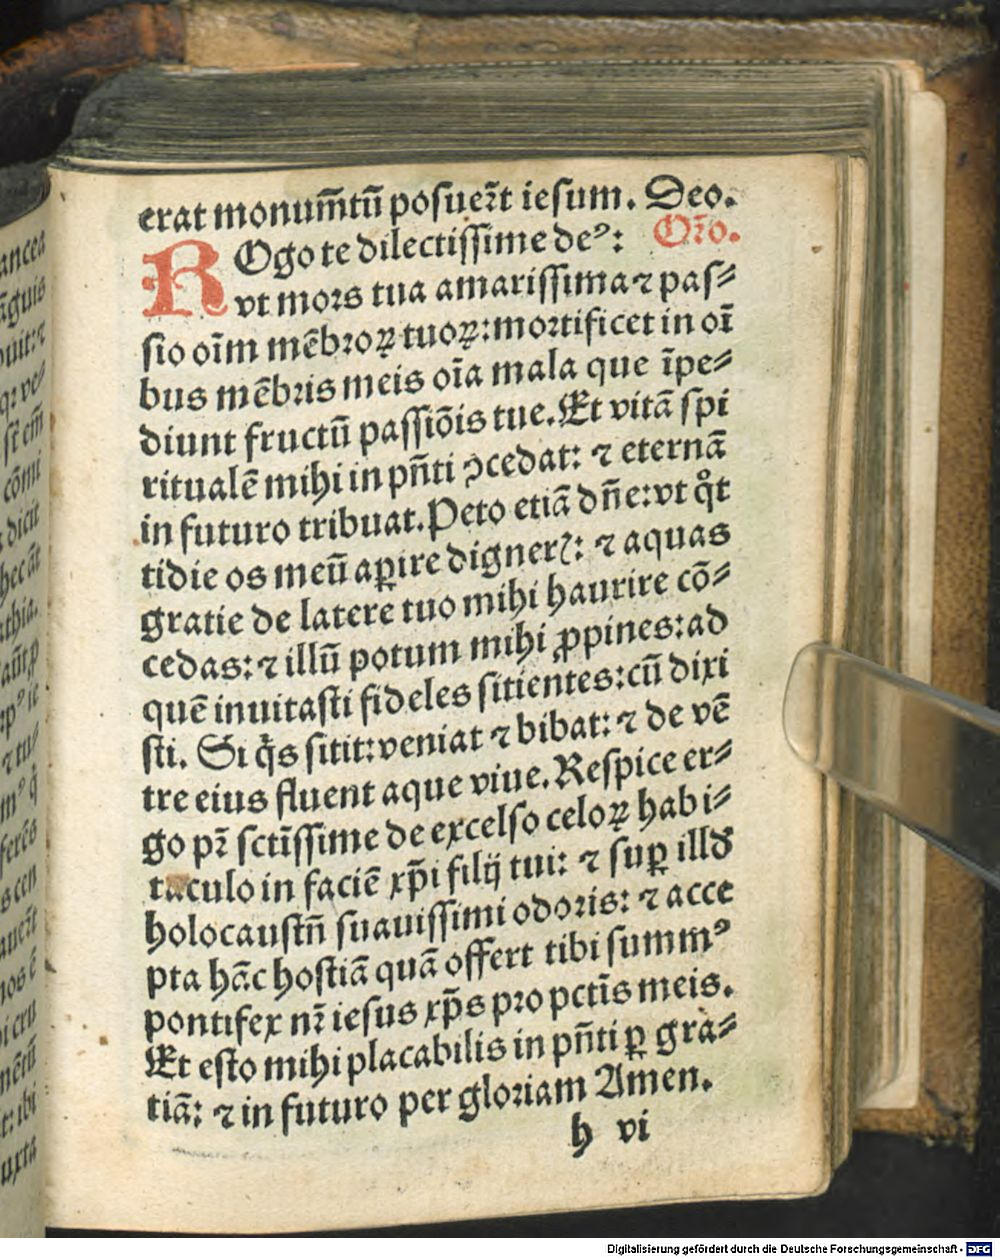 erat monum̄tū posuer̄t iesum. Deo.
ROgo te dilectissime deꝰ: Or̄o.
vt mors tua amarissima ⁊ pas⸗
sio oīm mēbroꝝ tuoꝝ: mortificet in oī
bus mēbris meis oīa mala que īpe⸗
diunt fructū passiōis tue. Et vitā spi
ritualē mihi in pn̄ti ↄcedat: ⁊ eternā
in futuro tribuat. Peto etiā dn̄e: vt qͦt
tidie os meū aꝑire dignerꝭ: ⁊ aquas
gratie de latere tuo mihi haurire cō⸗
cedas: ⁊ illū potum mihi ꝓpines: ad
quē inuitasti fideles sitientes: cū dixi
sti. Si q̄s sitit: veniat ⁊ bibat: ⁊ de vē
tre eius fluent aque viue. Respice er⸗
go pr̄ sctīssime de excelso celoꝝ habi⸗
taculo in faciē xp̄i filij tui: ⁊ suꝑ illđ
holocaustn̄ suauissimi odoris: ⁊ acce
pta hāc hostiā quā offert tibi summꝰ
pontifex nr̄ iesus xp̄s pro pctīs meis.
Et esto mihi placabilis in pn̄ti ꝑ gra⸗
tiā: ⁊ in futuro per gloriam Amen.
h vi
ancea
āguis
ouit: ⁊
st̄ em̄
cōmi
dicit
hec āt
⁊ tu⸗
ferēs
nos ē
pi cru
mētū
t: ibi
uxta
Digitalisierung gefördert durch die Deutsche Forschungsgemeinschaft - DFG